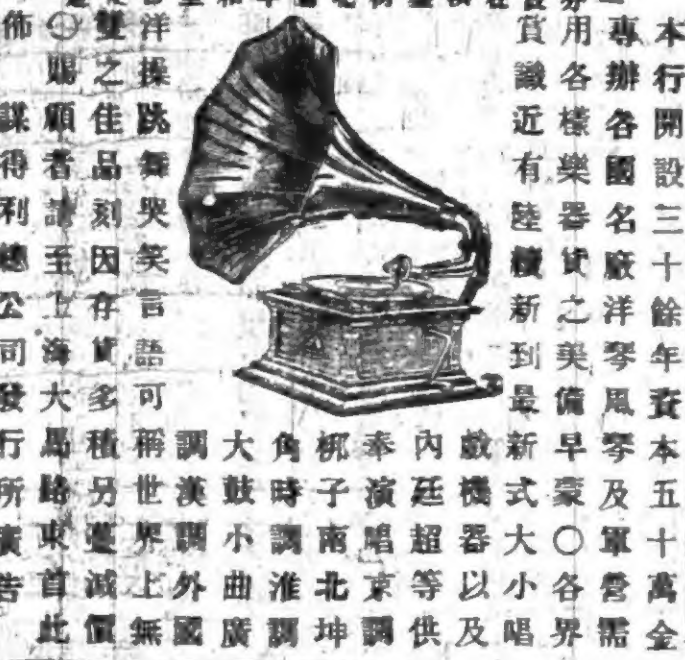 本行開設三十餘年資本五十萬金
專辦各國名廠洋琴風琴及軍營需
用各樣樂器貨之美備早蒙○各界
賞識近有陸續新到最新式大小唱
戲機器以及
內廷超等供
奉演唱京調
梆子南北坤
角時調淮調
大鼓小曲廣
調漢調外國
洋操跳舞哭笑言語可稱世界上無
雙之佳品刻因存貨多積另躉減價
○賜顧者請至上海大馬路東首此
佈 謀得利總公司發行所廣告